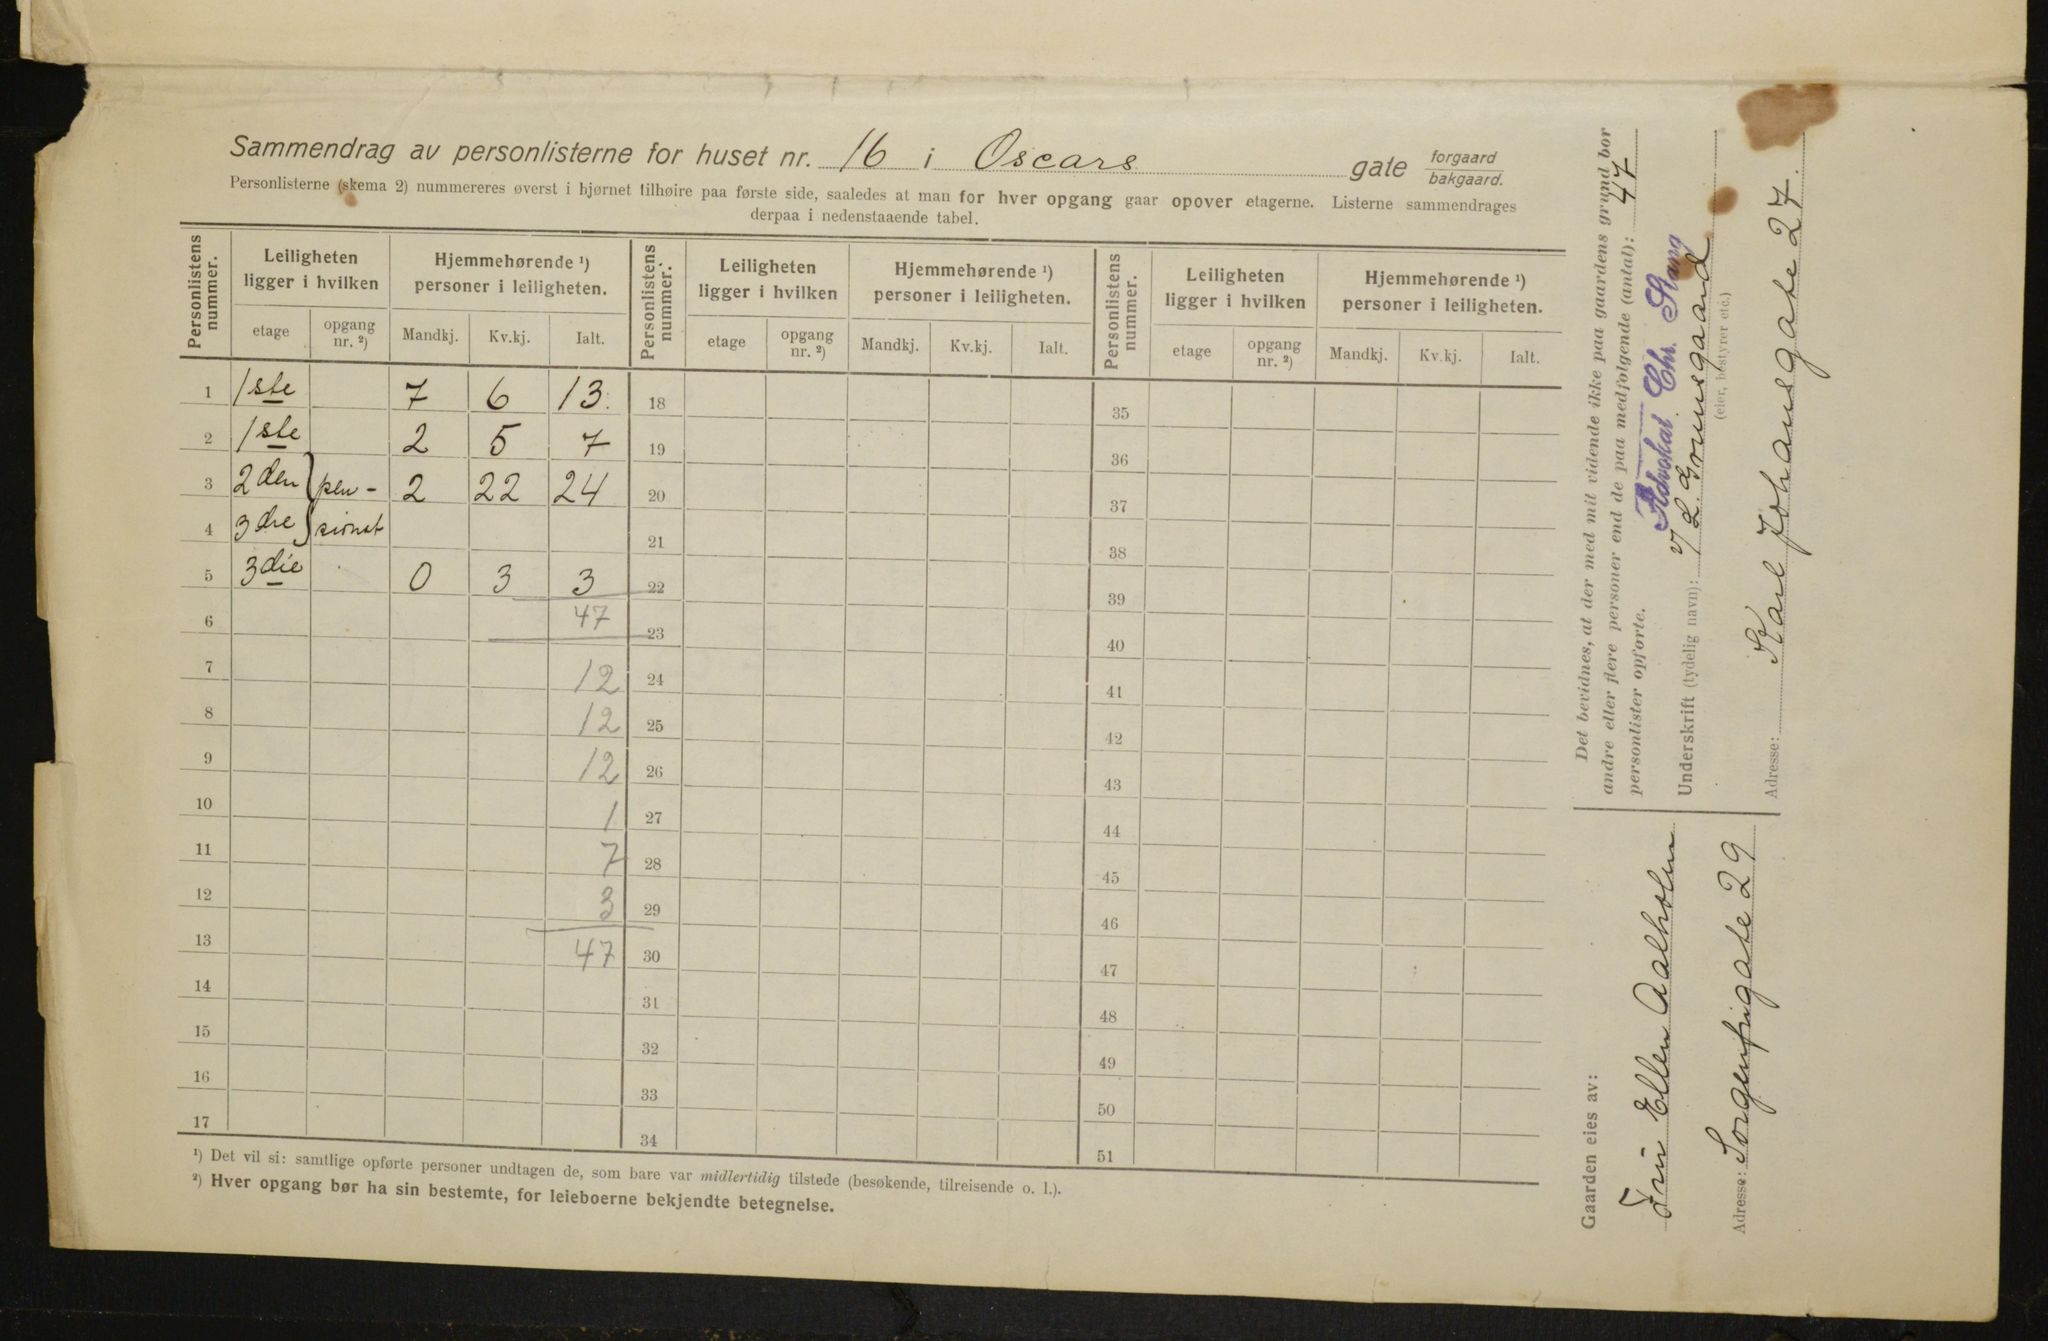 Sammendrag av personlisterne for huset nr. 16 i Oscars gate forgaard bakgaard.
Personlisterne (skema 2) nummereres øverst i hjørnet tilhøire paa første side, saaledes at man for hver opgang gaar opover etagerne. Listerne sammendrages
derpaa i nedenstaaende tabel.
Personlistens nummer. Leiligheten ligger i hvilken Hjemmehørende ¹) personer i leiligheten. Personlistens nummer. Leiligheten ligger i hvilken Hjemmehørende ¹) personer i leiligheten. Personlistens nummer. Leiligheten ligger i hvilken Hjemmehørende ¹) personer i leiligheten.
etage opgang nr. ²) Mandkj. Kv.kj. Ialt. etage opgang nr. ²) Mandkj. Kv.kj. Ialt. etage opgang nr. ²) Mandkj. Kv.kj. Ialt.
1 1ste 7 6 13. 18 35
2 1ste 2 5 7 19 36
3 2den pen- 2 22 24 20 37
4 3die sionat 21 38
5 3die 0 3 3 22 39
6 47 23 40
7 12 24 41
8 12 25 42
9 12 26 43
10 1 27 44
11 7 28 45
12 3 29 46
13 47 30 47
14 31 48
15 32 49
16 33 50
17 34 51
¹) Det vil si: samtlige opførte personer undtagen de, som bare var midlertidig tilstede (besøkende, tilreisende o. l.).
²) Hver opgang bør ha sin bestemte, for leieboerne bekjendte betegnelse.
Det bevidnes, at der med mit vidende ikke paa gaardens grund bor
andre eller flere personer end de paa medfølgende (antal): 47
personlister opførte.
Advokat Chr. Stang
Underskrift (tydelig navn): v/ L. Grønsgaard
(eier, bestyrer etc.)
Adresse: Karl Johansgate 27.
Gaarden eies av:
Fru Ellen Aalholm
Adresse: Sorgenfrigate 29